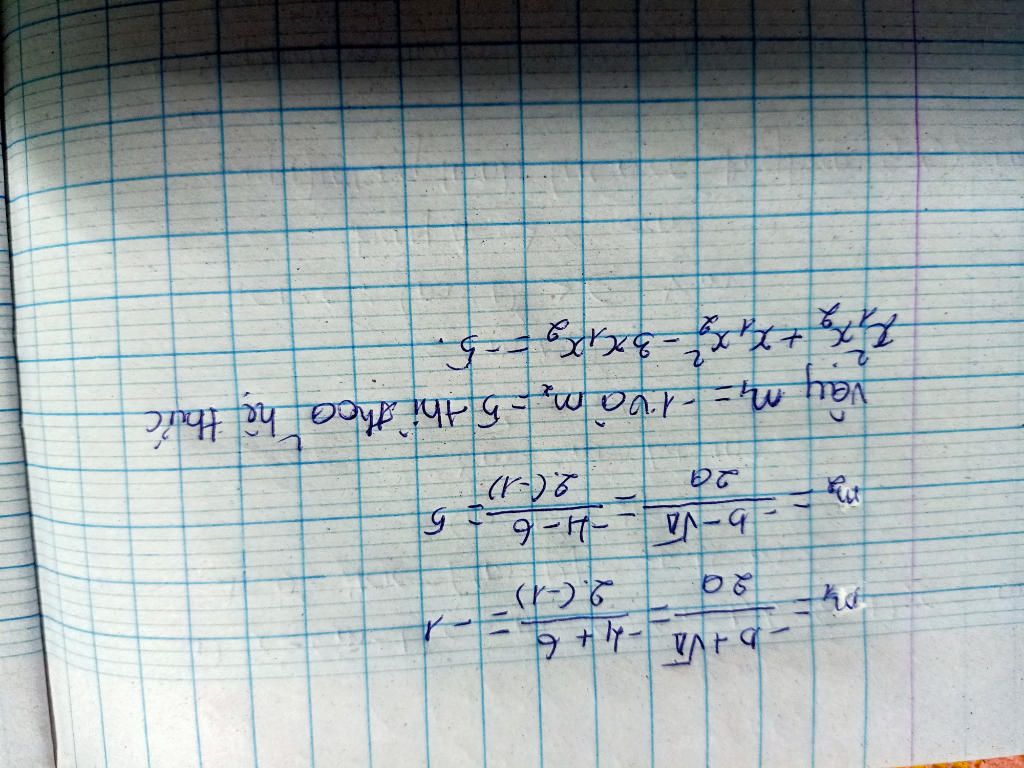 m₁ = (-b + √Δ)/(2a) = (-4 + 6)/(2.(-1)) = -1
m₂ = (-b - √Δ)/(2a) = (-4 - 6)/(2.(-1)) = 5
Vậy m₁ = -1 và m₂ = 5 thì thỏa hệ thức
x₁²x₂ + x₁x₂² - 3x₁x₂ = -5.